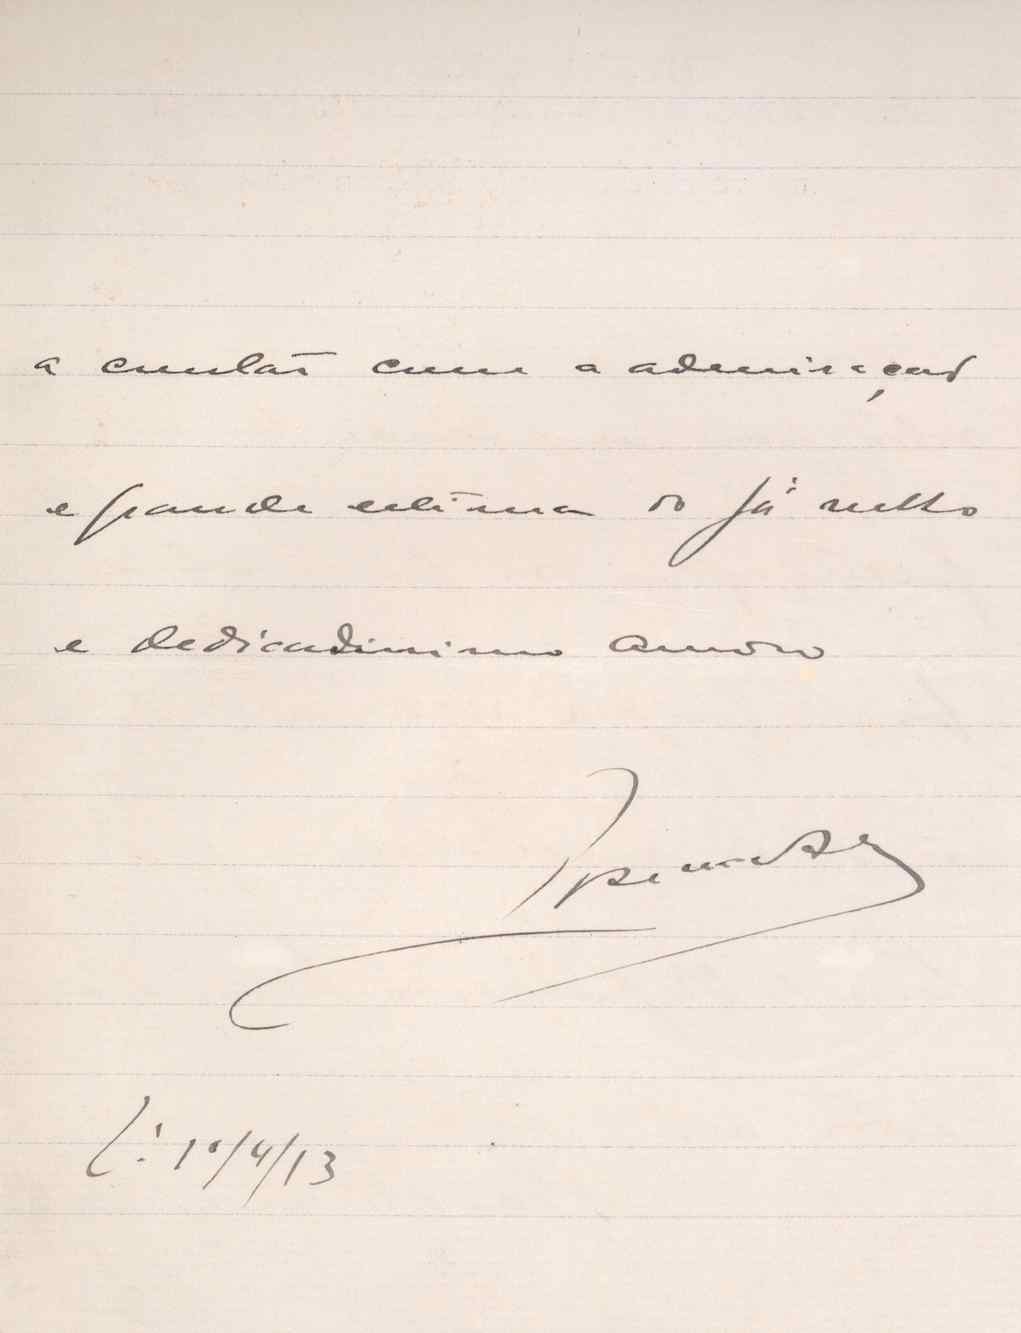 a contar com a admiração
e grande estima do já velho
e dedicadissimo amigo
L: 1º/4/13